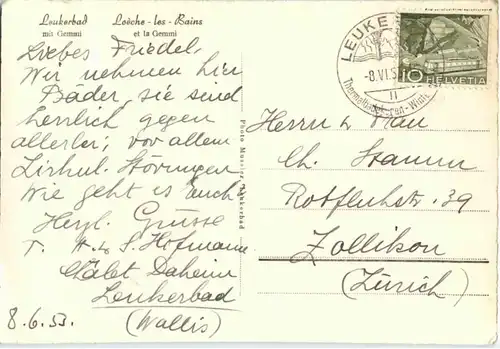 Leukerbad Loèche-les-Bains
mit Gemmi et la Gemmi
Liebes Friedel.
Wir nehmen hier
Bäder, sie sind
herrlich gegen
allerlei; vor allem
Zirkul. Störungen
Wie geht es auch
Herzl. Grüsse
H. & S. Hofmann
Châlet Daheim
Leukerbad
(Wallis)
8.6.53.
Photo Leukerbad
LEUKE
-8.VI.5
Thermalbadekuren-Wint
10 HELVETIA
Herrn & Frau
Ch. Stamm
Rotfluhstr. 39
Zollikon
(Zürich)